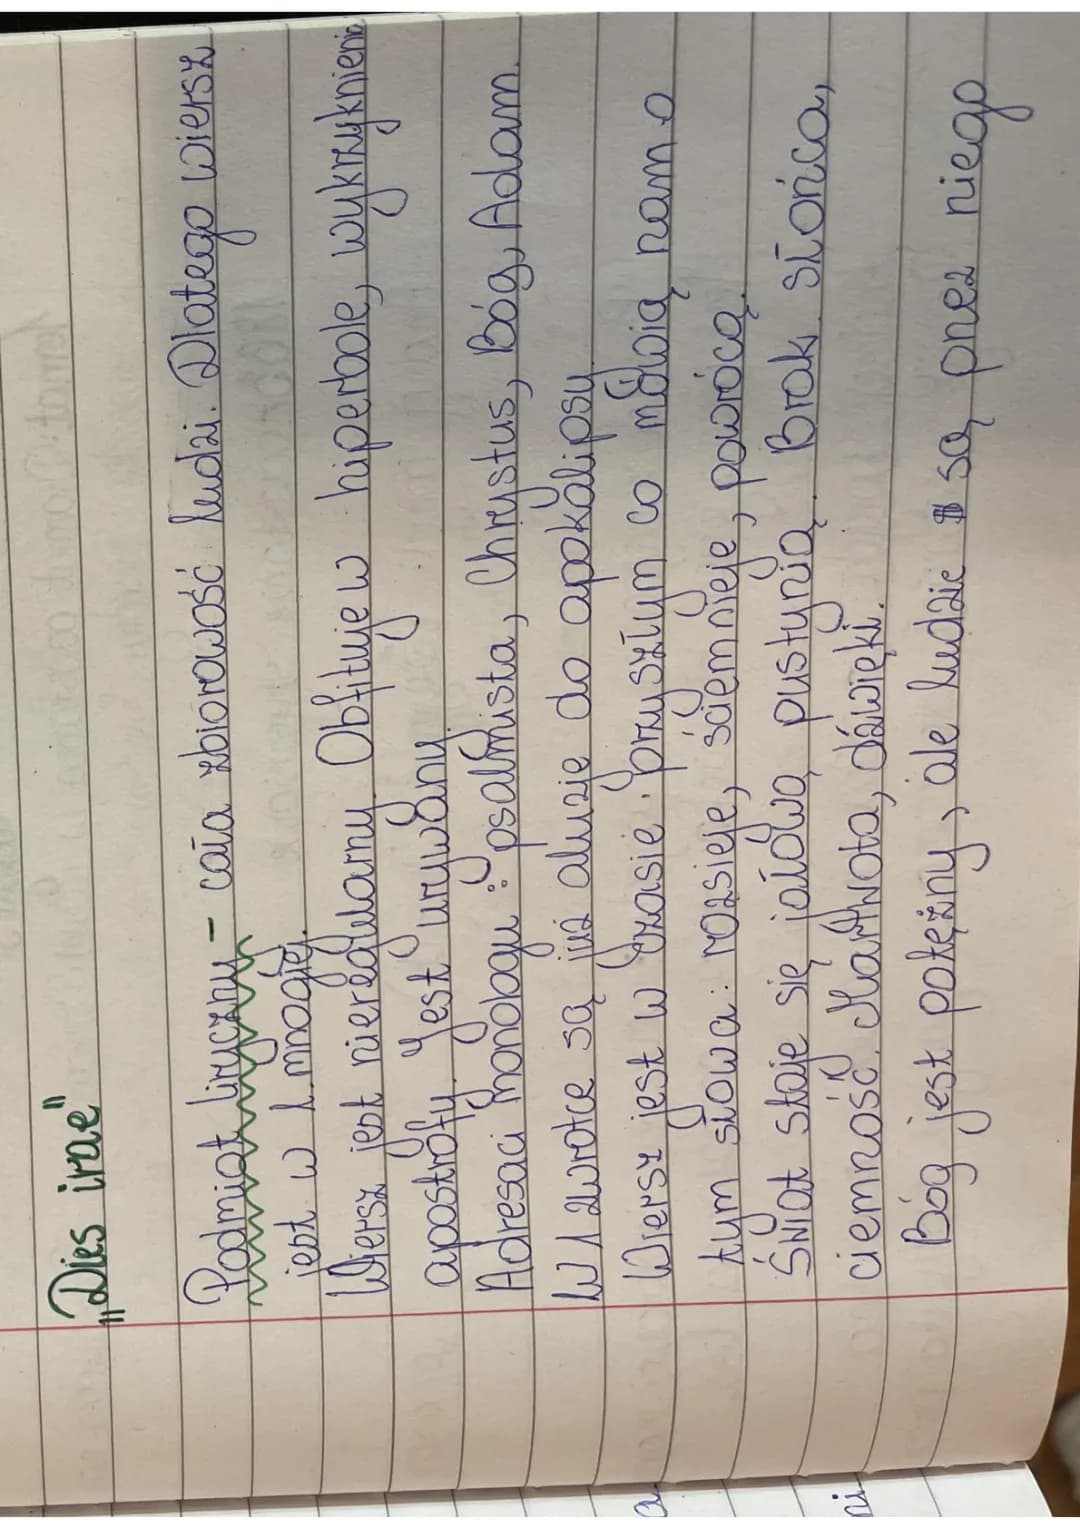 "Dies irae"
Podmiot liryczny - cała zbiorowość ludzi. Dlatego wiersz
jest w l. mnogiej.
Wiersz jest nieregularny. Obfituje w hiperbole, wykrzyknienia
apostrofy. Jest urywany.
Adresaci monologu: psalmista, Chrystus, Bóg, Adam.
W 1 zwrotce są już aluzje do apokalipsy
Wiersz jest w czasie przyszłum co mówią nam o
tym słowa: rozsieje, ściemnieje, powrócą.
Świat staje się jałową pustynią. Brak słońca,
ciemność. Martwota, dźwięki.
Bóg jest potężny, ale ludzie są przez niego
a
ni